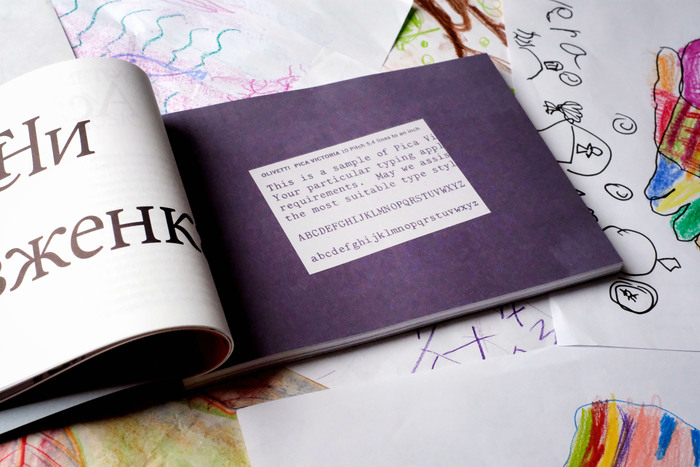 Ни
женк
OLIVETTI PICA VICTORIA 10 Pitch 5.4 lines to an inch
This is a sample of Pica Vi
Your particular typing appl
requirements. May we assis
the most suitable type styl
ABCDEFGHIJKLMNOPQRSTUVWXYZ
abcdefghijklmnopqrstuvwxyz